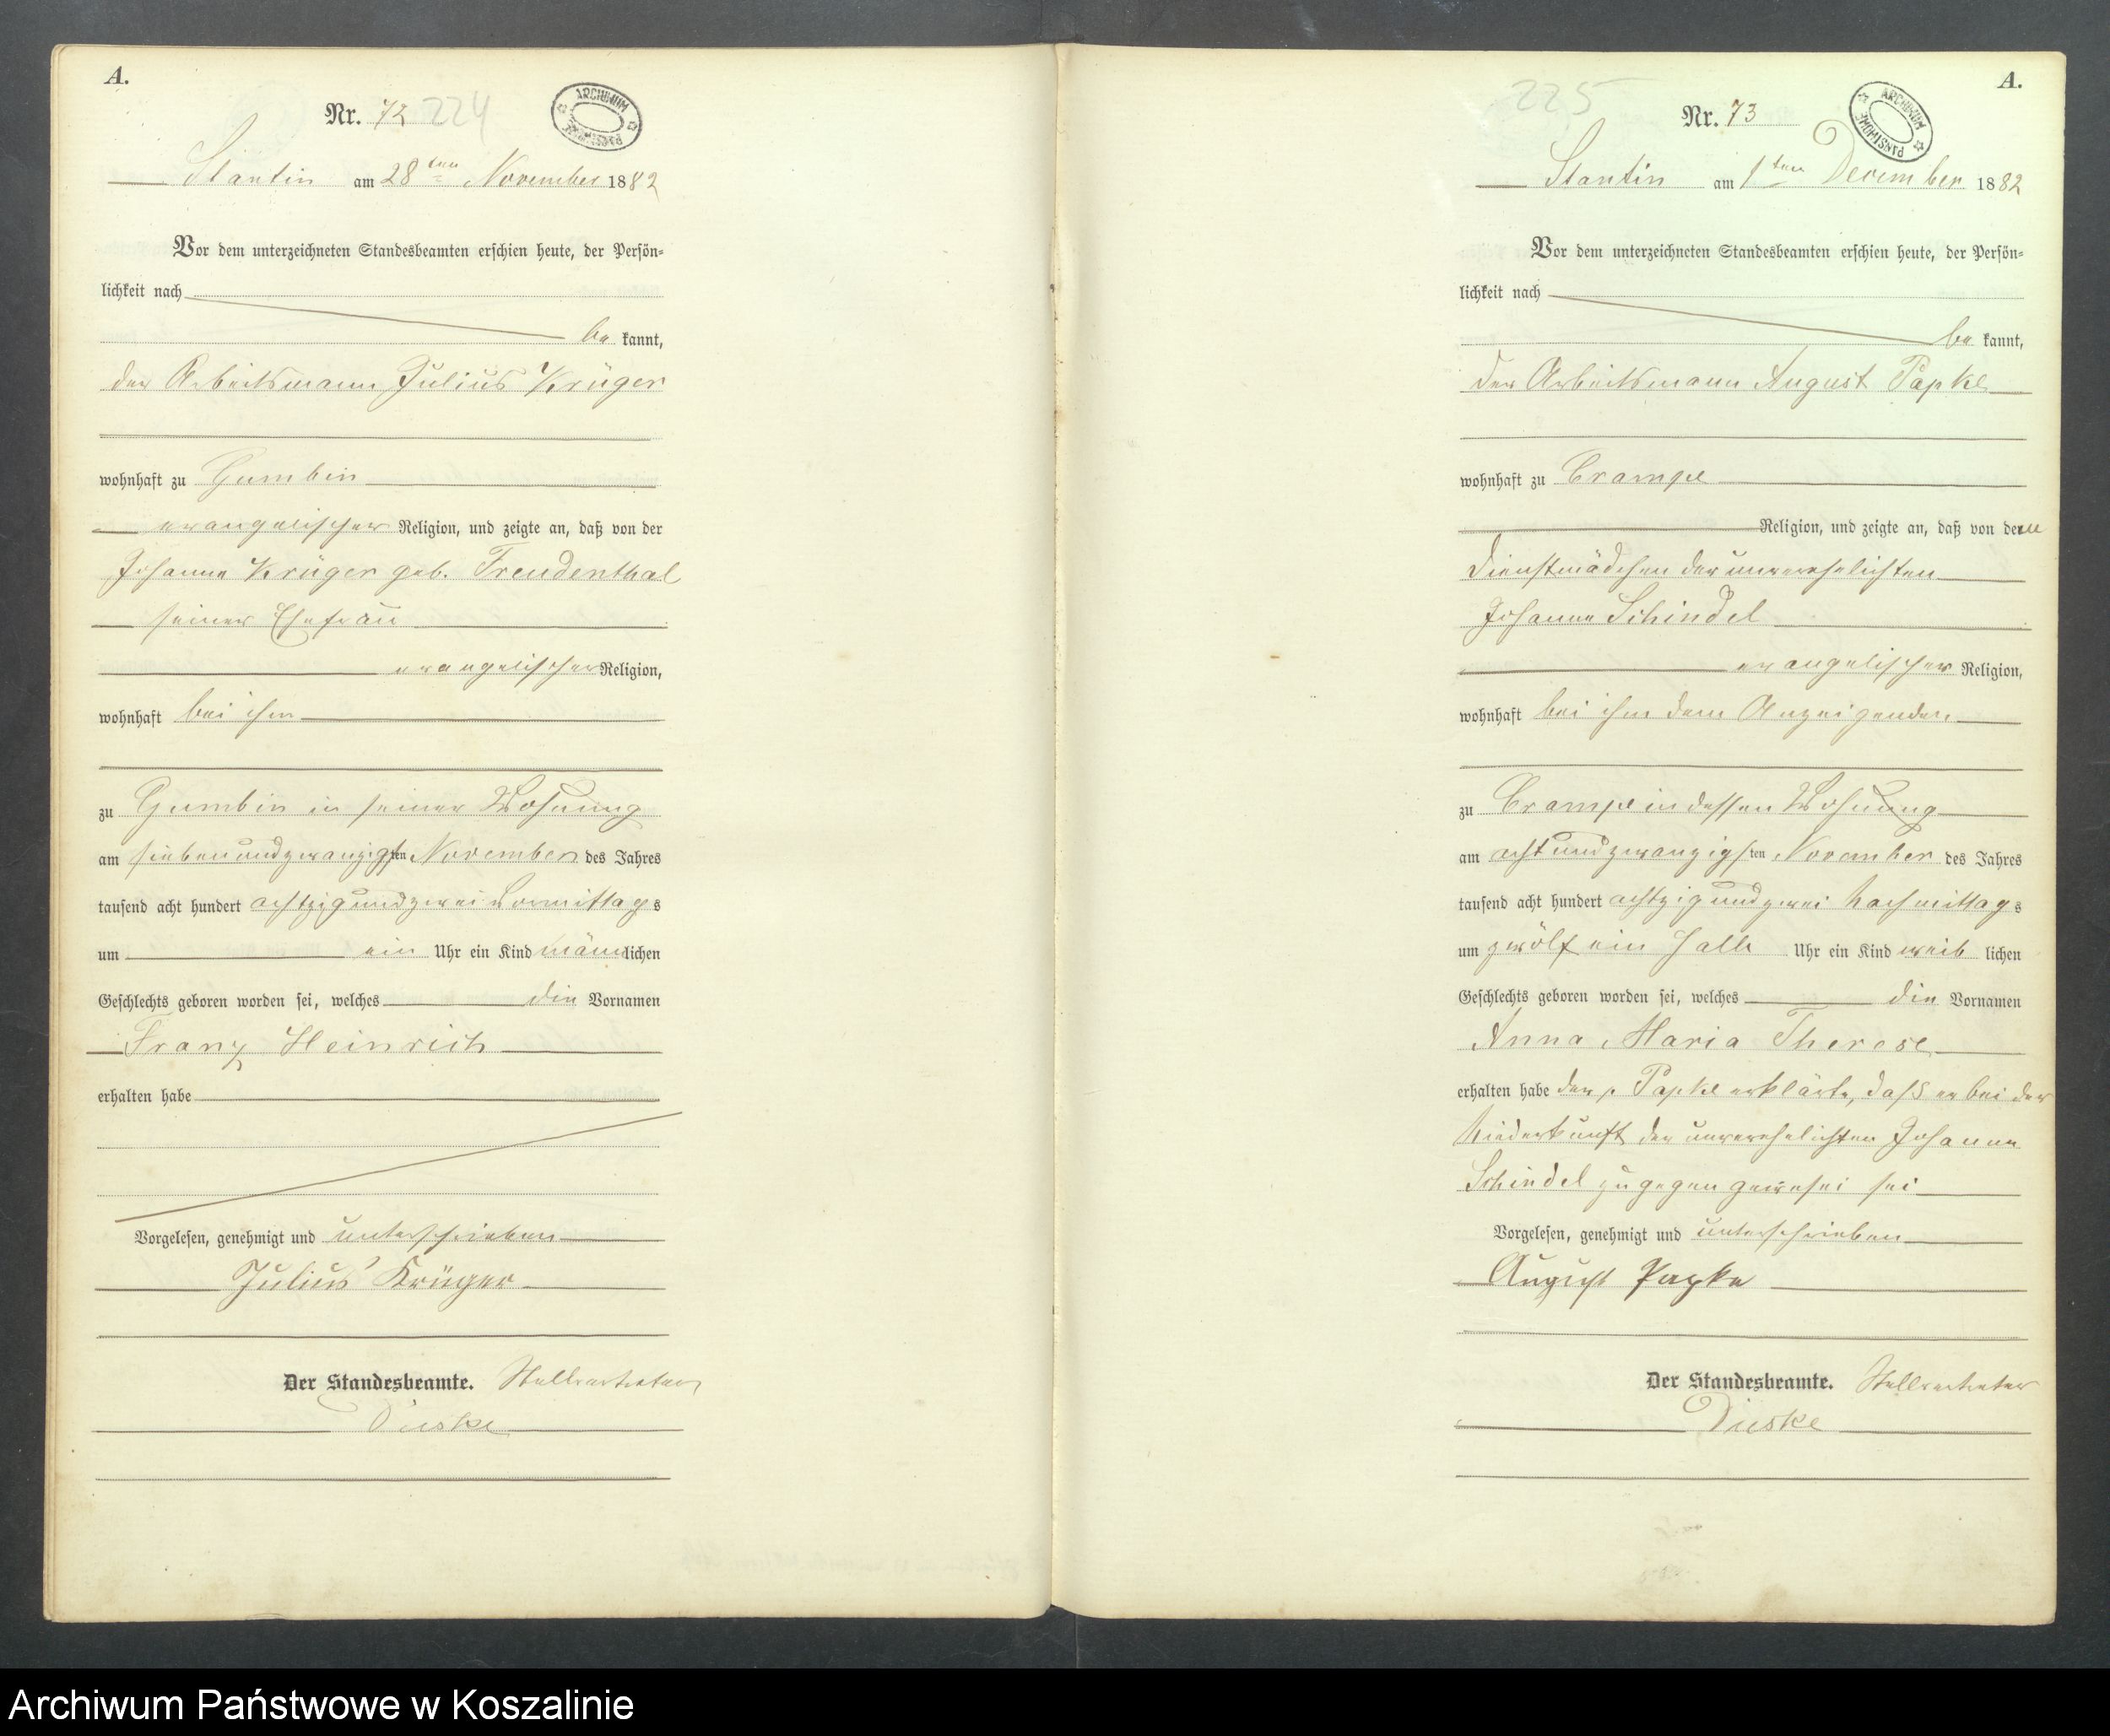 A.
Nr. 72 224
ARCHIWUM PAŃSTWOWE
Stantin am 28ten November 1882
Vor dem unterzeichneten Standesbeamten erschien heute, der Persön-
lichkeit nach
be kannt,
der Arbeitsmann Julius Krüger
wohnhaft zu Gumbin
evangelischer Religion, und zeigte an, daß von der
Johanne Krüger geb. Freudenthal
seiner Ehefrau
evangelischer Religion,
wohnhaft bei ihm
zu Gumbin in seiner Wohnung
am siebenundzwanzigsten November des Jahres
tausend acht hundert achtzig und zwei Vormittags
um ein Uhr ein Kind männlichen
Geschlechts geboren worden sei, welches die Vornamen
Franz Heinrich
erhalten habe
Vorgelesen, genehmigt und unterschrieben
Julius Krüger
Der Standesbeamte. Stellvertreter
Dieske
A.
225
Nr. 73
ARCHIWUM PAŃSTWOWE
Stantin am 1ten December 1882
Vor dem unterzeichneten Standesbeamten erschien heute, der Persön-
lichkeit nach
be kannt,
der Arbeitsmann August Papke
wohnhaft zu Crampe
Religion, und zeigte an, daß von dem
Dienstmädchen der unverehelichten
Johanne Schindel
evangelischer Religion,
wohnhaft bei ihm dem Anzeigenden
zu Crampe in dessen Wohnung
am achtundzwanzigsten November des Jahres
tausend acht hundert achtzig und zwei Nachmittags
um zwölf ein halb Uhr ein Kind weib lichen
Geschlechts geboren worden sei, welches die Vornamen
Anna Maria Therese
erhalten habe der p. Papke erklärte, daß er bei der
Niederkunft der unverehelichten Johanne
Schindel zugegen gewesen sei
Vorgelesen, genehmigt und unterschrieben
August Papke
Der Standesbeamte. Stellvertreter
Dieske
Archiwum Państwowe w Koszalinie